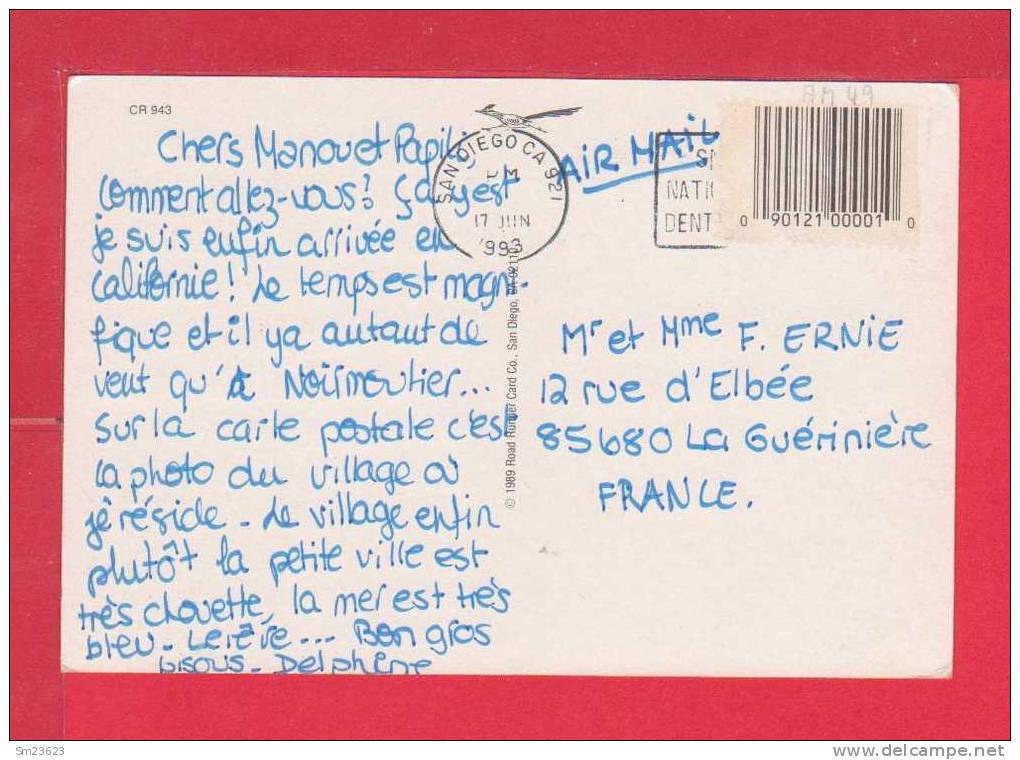 CR 943
Chers Manou et Papili
Comment allez-vous? Ça y est
je suis enfin arrivée en
Californie! Le temps est magni-
fique et il y a autant de
vent qu'à Noirmoutier...
Sur la carte postale c'est
la photo du village où
je réside. Le village enfin
plutôt la petite ville est
très chouette, la mer est très
bleu. Le rêve... Bon gros
bisous. Delphine
© 1989 Road Runner Card Co., San Diego, CA 92110
SAN DIEGO CA 921
PM
17 JUN
1993
AIR MAIL
NATIO
DENT
AM 49
0 90121 00001 0
Mr et Mme F. ERNIE
12 rue d'Elbée
85680 La Guérinière
FRANCE.
Sm23623
www.delcampe.net